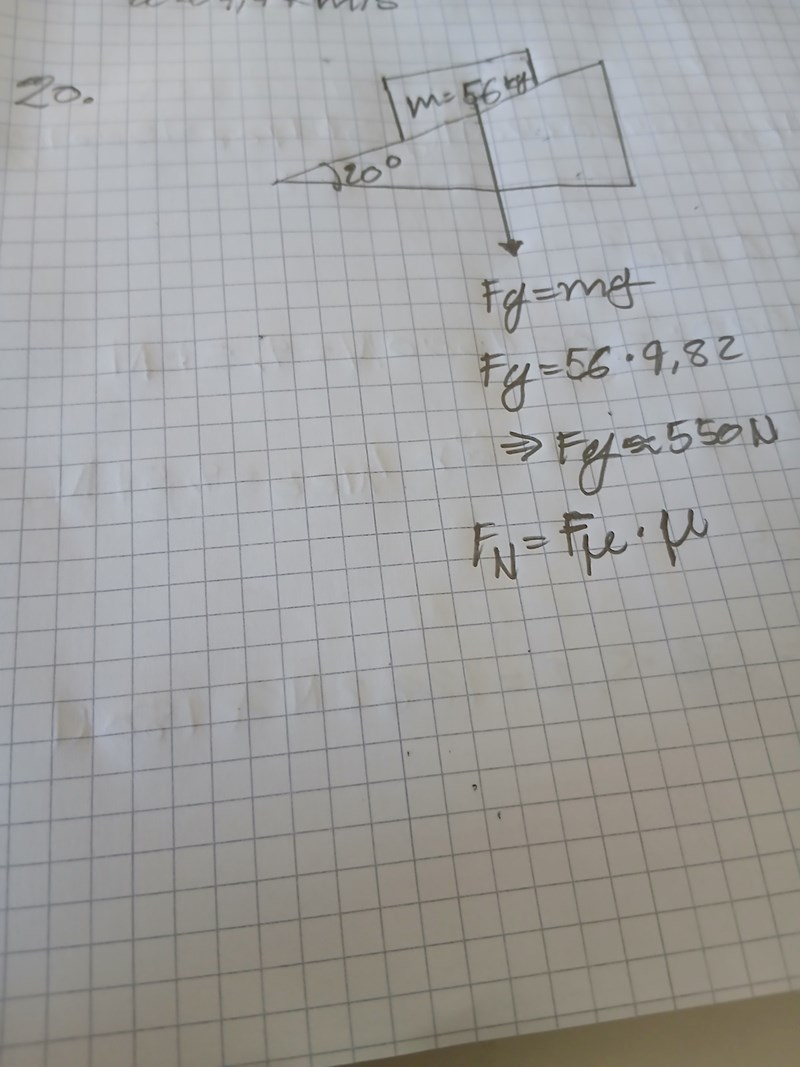 20.
m=56kg
20°
Fg=mg
Fg=56·9,82
⇒ Fg≈550N
F_N = Fμ·μ